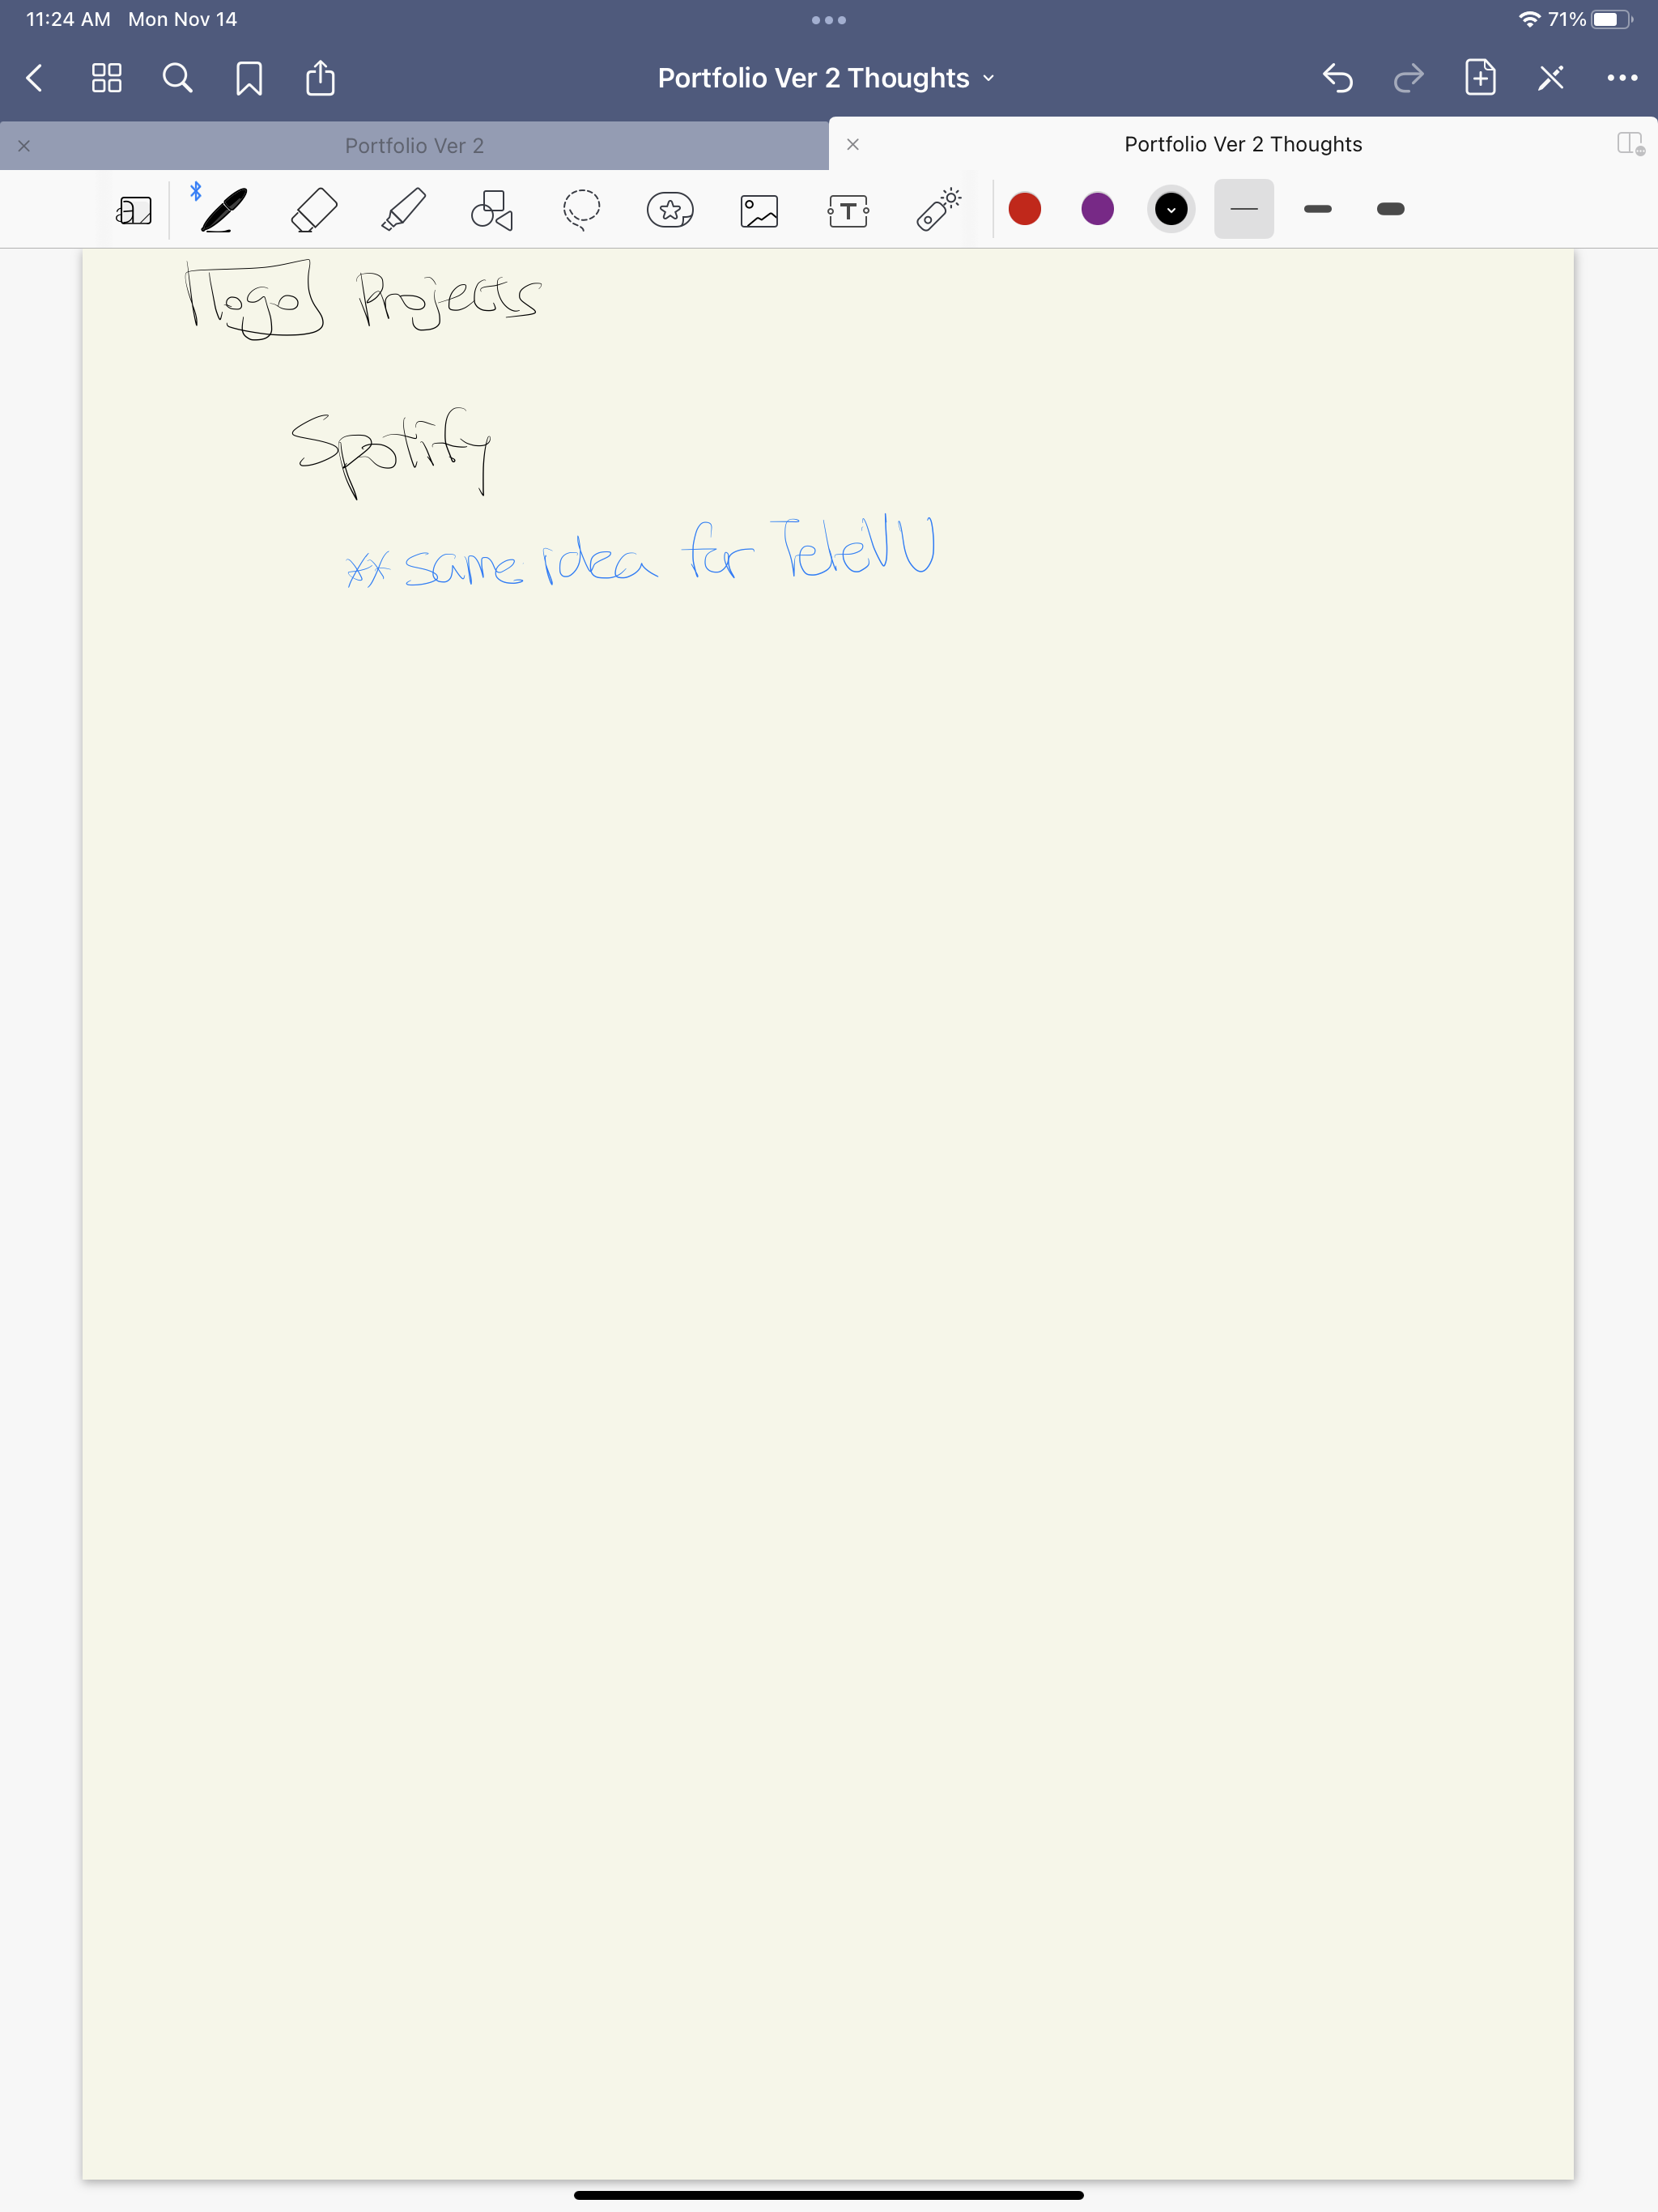 11:24 AM Mon Nov 14
71%
Portfolio Ver 2 Thoughts
Portfolio Ver 2
Portfolio Ver 2 Thoughts
logo Projects
Spotify
** same idea for TeleVU